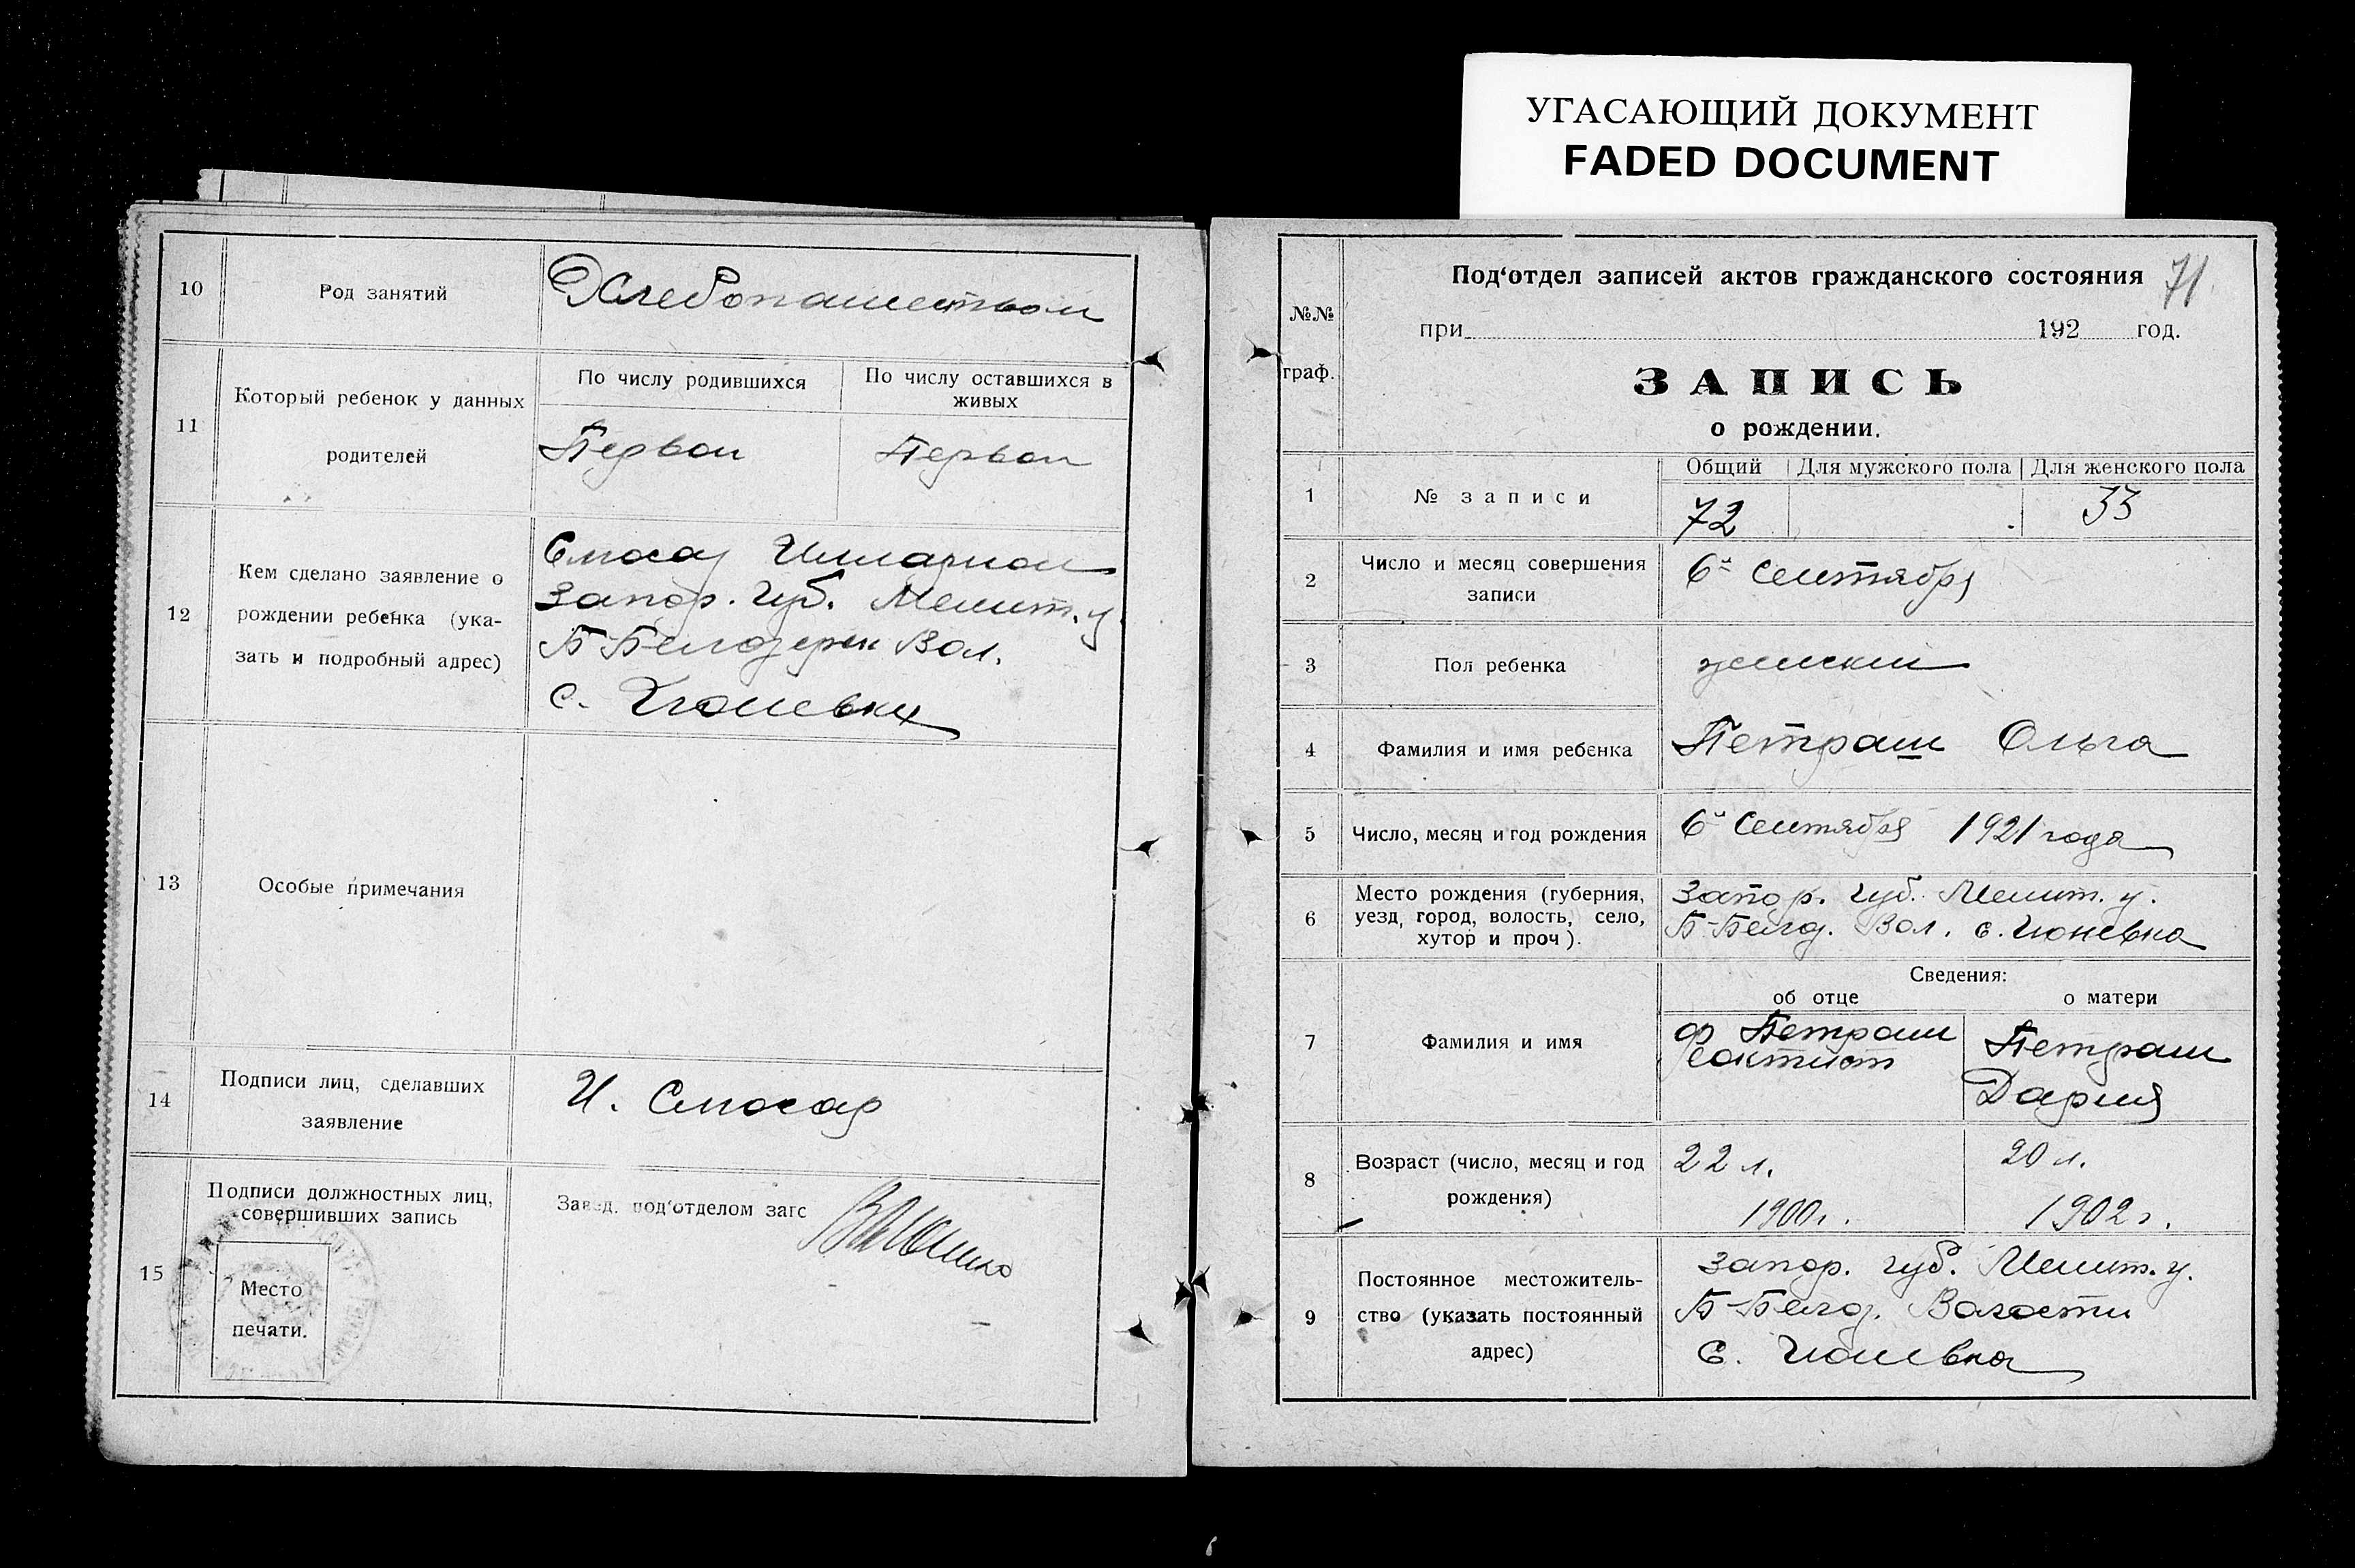 УГАСАЮЩИЙ ДОКУМЕНТ
FADED DOCUMENT
10
Род занятий
Хлебопашеством
11
Который ребенок у данных
родителей
По числу родившихся
По числу оставшихся в
живых
Первой
Первой
12
Кем сделано заявление о
рождении ребенка (ука-
зать и подробный адрес)
Слюсар Илларион
Запор. Губ. Мелит. у.
Б-Белозерск Вол.
с.
13
Особые примечания
14
Подписи лиц, сделавших
заявление
И. Слюсар
15
Подписи должностных лиц,
совершивших запись
Место
печати.
Завед. под‘отделом загс
71
№№
граф.
Под‘отдел записей актов гражданского состояния
при 192 год.
ЗАПИСЬ
о рождении.
1
№ записи
Общий
Для мужского пола
Для женского пола
72
33
2
Число и месяц совершения
записи
6й Сентября
3
Пол ребенка
женский
4
Фамилия и имя ребенка
Петраш Ольга
5
Число, месяц и год рождения
6й Сентября 1921 года
6
Место рождения (губерния,
уезд, город, волость, село,
хутор и проч).
Запор. губ. Мелит. у.
Б-Белоз. Вол. с. Чюневка
7
Фамилия и имя
Сведения:
об отце
о матери
Петраш
Феоктист
Петраш
Дария
8
Возраст (число, месяц и год
рождения)
22 л.
1900 г.
20 л.
1902 г.
9
Постоянное местожитель-
ство (указать постоянный
адрес)
Запор. губ. Мелит. у.
Б-Белоз. Волости
с. Чюневка